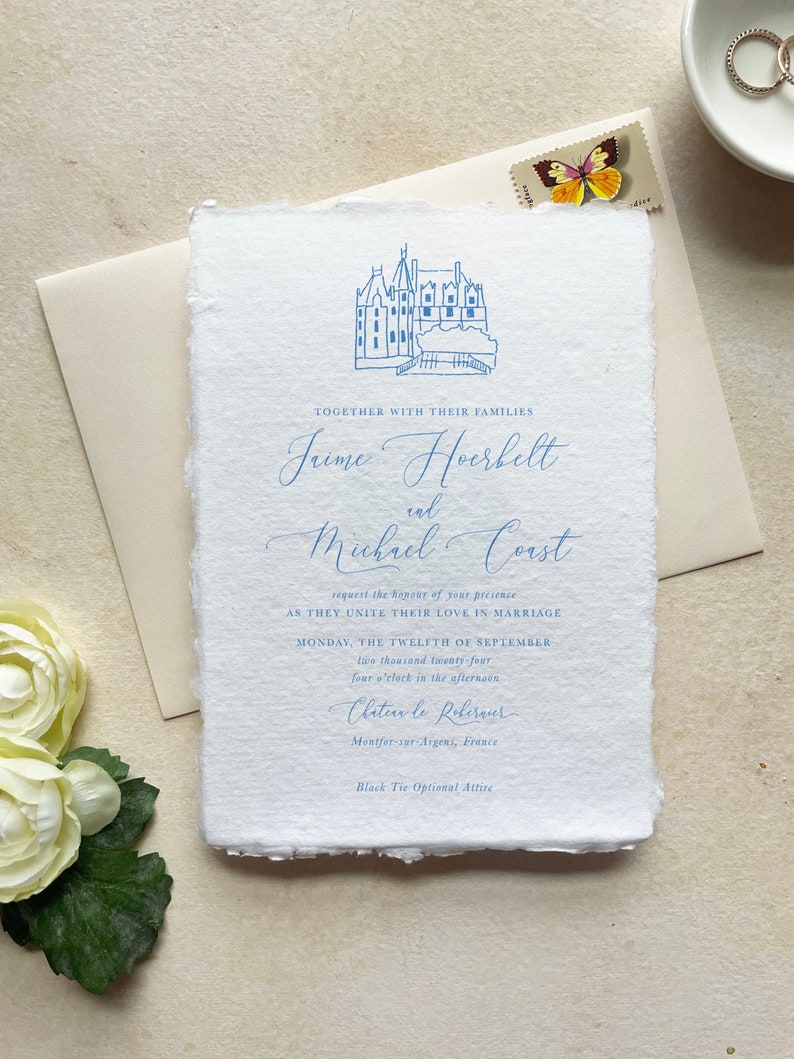 TOGETHER WITH THEIR FAMILIES
Jaime Hoerbelt
and
Michael Coast
request the honour of your presence
AS THEY UNITE THEIR LOVE IN MARRIAGE
MONDAY, THE TWELFTH OF SEPTEMBER
two thousand twenty-four
four o'clock in the afternoon
Chateau de Robernier
Montfor-sur-Argens, France
Black Tie Optional Attire